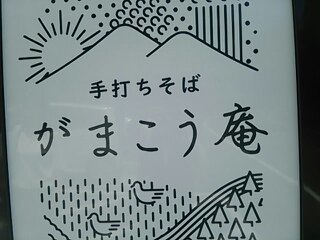 手打ちそば
がまこう庵